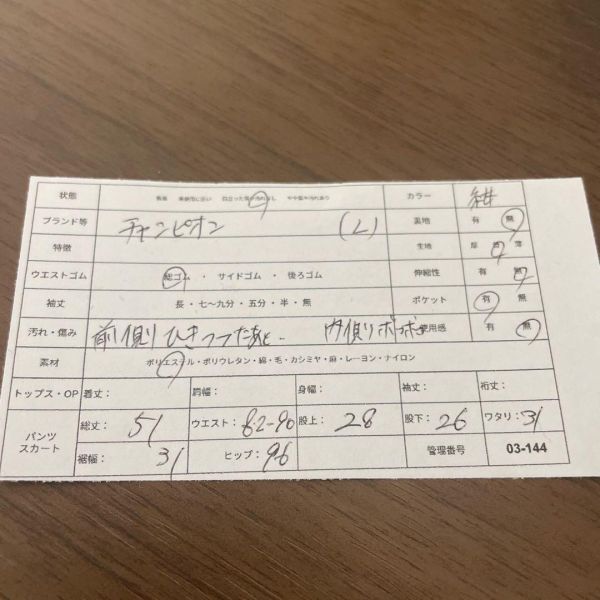 状態 新品 未使用に近い 目立った傷や汚れなし やや傷や汚れあり カラー 紺
ブランド等 チャンピオン (L) 裏地 有 無
特徴 生地 厚 普 薄
ウエストゴム 総ゴム ・ サイドゴム ・ 後ろゴム 伸縮性 有 無
袖丈 長 ・ 七〜九分 ・ 五分 ・ 半 ・ 無 ポケット 有 無
汚れ・傷み 前側りひきつったあと. 内側りボツボツ 使用感 有 無
素材 ポリエステル・ポリウレタン・綿・毛・カシミヤ・麻・レーヨン・ナイロン
トップス・OP 着丈： 肩幅： 身幅： 袖丈： 裄丈：
パンツ スカート 総丈： 51 ウエスト： 62-90 股上： 28 股下： 26 ワタリ： 31
裾幅： 31 ヒップ： 96 管理番号 03-144